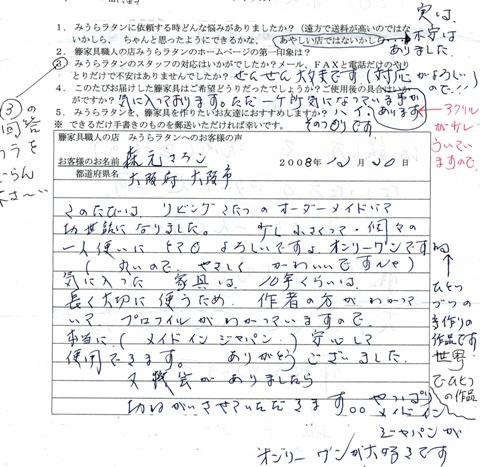 1. みうらラタンに依頼する時どんな悩みがありましたか？（遠方で送料が高いのではな
いかしら、ちゃんとしたようにできるかな、あやしい店ではないかしら
実は、
不安は
ありました
2. 籐家具職人の店みうらラタンのホームページの第一印象は？
③ みうらラタンのスタッフの対応はいかがでしたか？メール、FAXと電話だけのやり
とりだけで不安はありませんでしたか？ ぜんぜん大丈夫です（対応がよろしい
ので！！）
4. このたびお届けした籐家具はご希望どうりだったでしょうか？ご使用後の具合はいか
がですか？ 気に入っております。ただ一ヶ所気になっています
5. みうらラタンを、籐家具を作りたいお友達におすすめしますか？ ハイ、あります
そのつもりです
※ できるだけ手書きのものを郵送いただければ幸いです。
←アクリル
が少し
ういてい
ますので
③の
回答
らん
籐家具職人の店 みうらラタンへのお客様の声
お客様のお名前
2008年12月20日
都道府県名 大阪府 大阪市
このたびは、リビングこたつのオーダーメイドにて
お世話になりました。 少し小さくって・個々の
一人使いにとてもよろしいですよ。オンリーワンですね
（丸いので、やさしくかわいいですんや）
気に入った 家具は、10年くらいは、
長く大切に使うため、作者の方がわかって
いて、プロフィルがわかっていますので、
本当に（メイドインジャパン）安心して
使用できます。 ありがとうございました。
又機会がありましたら
お願いさせていただきます。。やっぱり
メイドイン
ジャパンが
オンリーワンが大好きです
↑
ひとつ
づつの
手作りの
作品です
世界
でひとつ
の作品